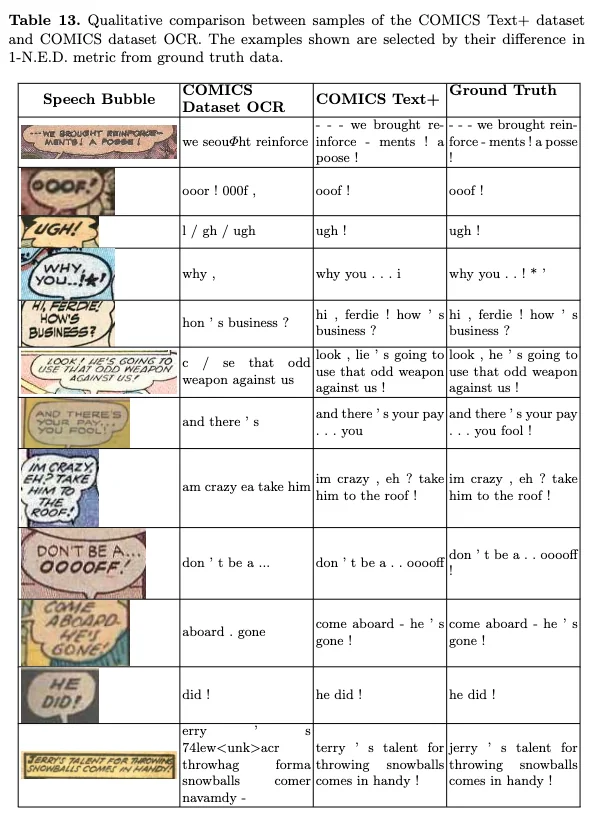 Table 13. Qualitative comparison between samples of the COMICS Text+ dataset
and COMICS dataset OCR. The examples shown are selected by their difference in
1-N.E.D. metric from ground truth data.
Speech Bubble
COMICS
Dataset OCR
COMICS Text+
Ground Truth
---WE BROUGHT REINFORCE-
MENTS! A POSSE!
we seouΦht reinforce
- - - we brought re-
inforce - ments ! a
poose !
- - - we brought rein-
force - ments ! a posse
!
OOOF!
ooor ! 000f ,
ooof !
ooof !
UGH!
l / gh / ugh
ugh !
ugh !
WHY,
YOU..!*!
why ,
why you . . . i
why you . . ! * ’
HI, FERDIE!
HOW'S
BUSINESS?
hon ’ s business ?
hi , ferdie ! how ’ s
business ?
hi , ferdie ! how ’ s
business ?
LOOK! HE'S GOING TO
USE THAT ODD WEAPON
AGAINST US!
c / se that odd
weapon against us
look , lie ’ s going to
use that odd weapon
against us !
look , he ’ s going to
use that odd weapon
against us !
AND THERE'S
YOUR PAY...
YOU FOOL!
and there ’ s
and there ’ s your pay
. . . you
and there ’ s your pay
. . . you fool !
IM CRAZY,
EH? TAKE
HIM TO
THE
ROOF!
am crazy ea take him
im crazy , eh ? take
him to the roof !
im crazy , eh ? take
him to the roof !
DON'T BE A...
OOOOFF!
don ’ t be a ...
don ’ t be a . . ooooff
don ’ t be a . . ooooff
!
COME
ABOARD-
HE'S
GONE!
aboard . gone
come aboard - he ’ s
gone !
come aboard - he ’ s
gone !
HE
DID!
did !
he did !
he did !
JERRY'S TALENT FOR THROWING
SNOWBALLS COMES IN HANDY!
erry ’ s
74lew<unk>acr
throwhag forma
snowballs comer
navamdy -
terry ’ s talent for
throwing snowballs
comes in handy !
jerry ’ s talent for
throwing snowballs
comes in handy !